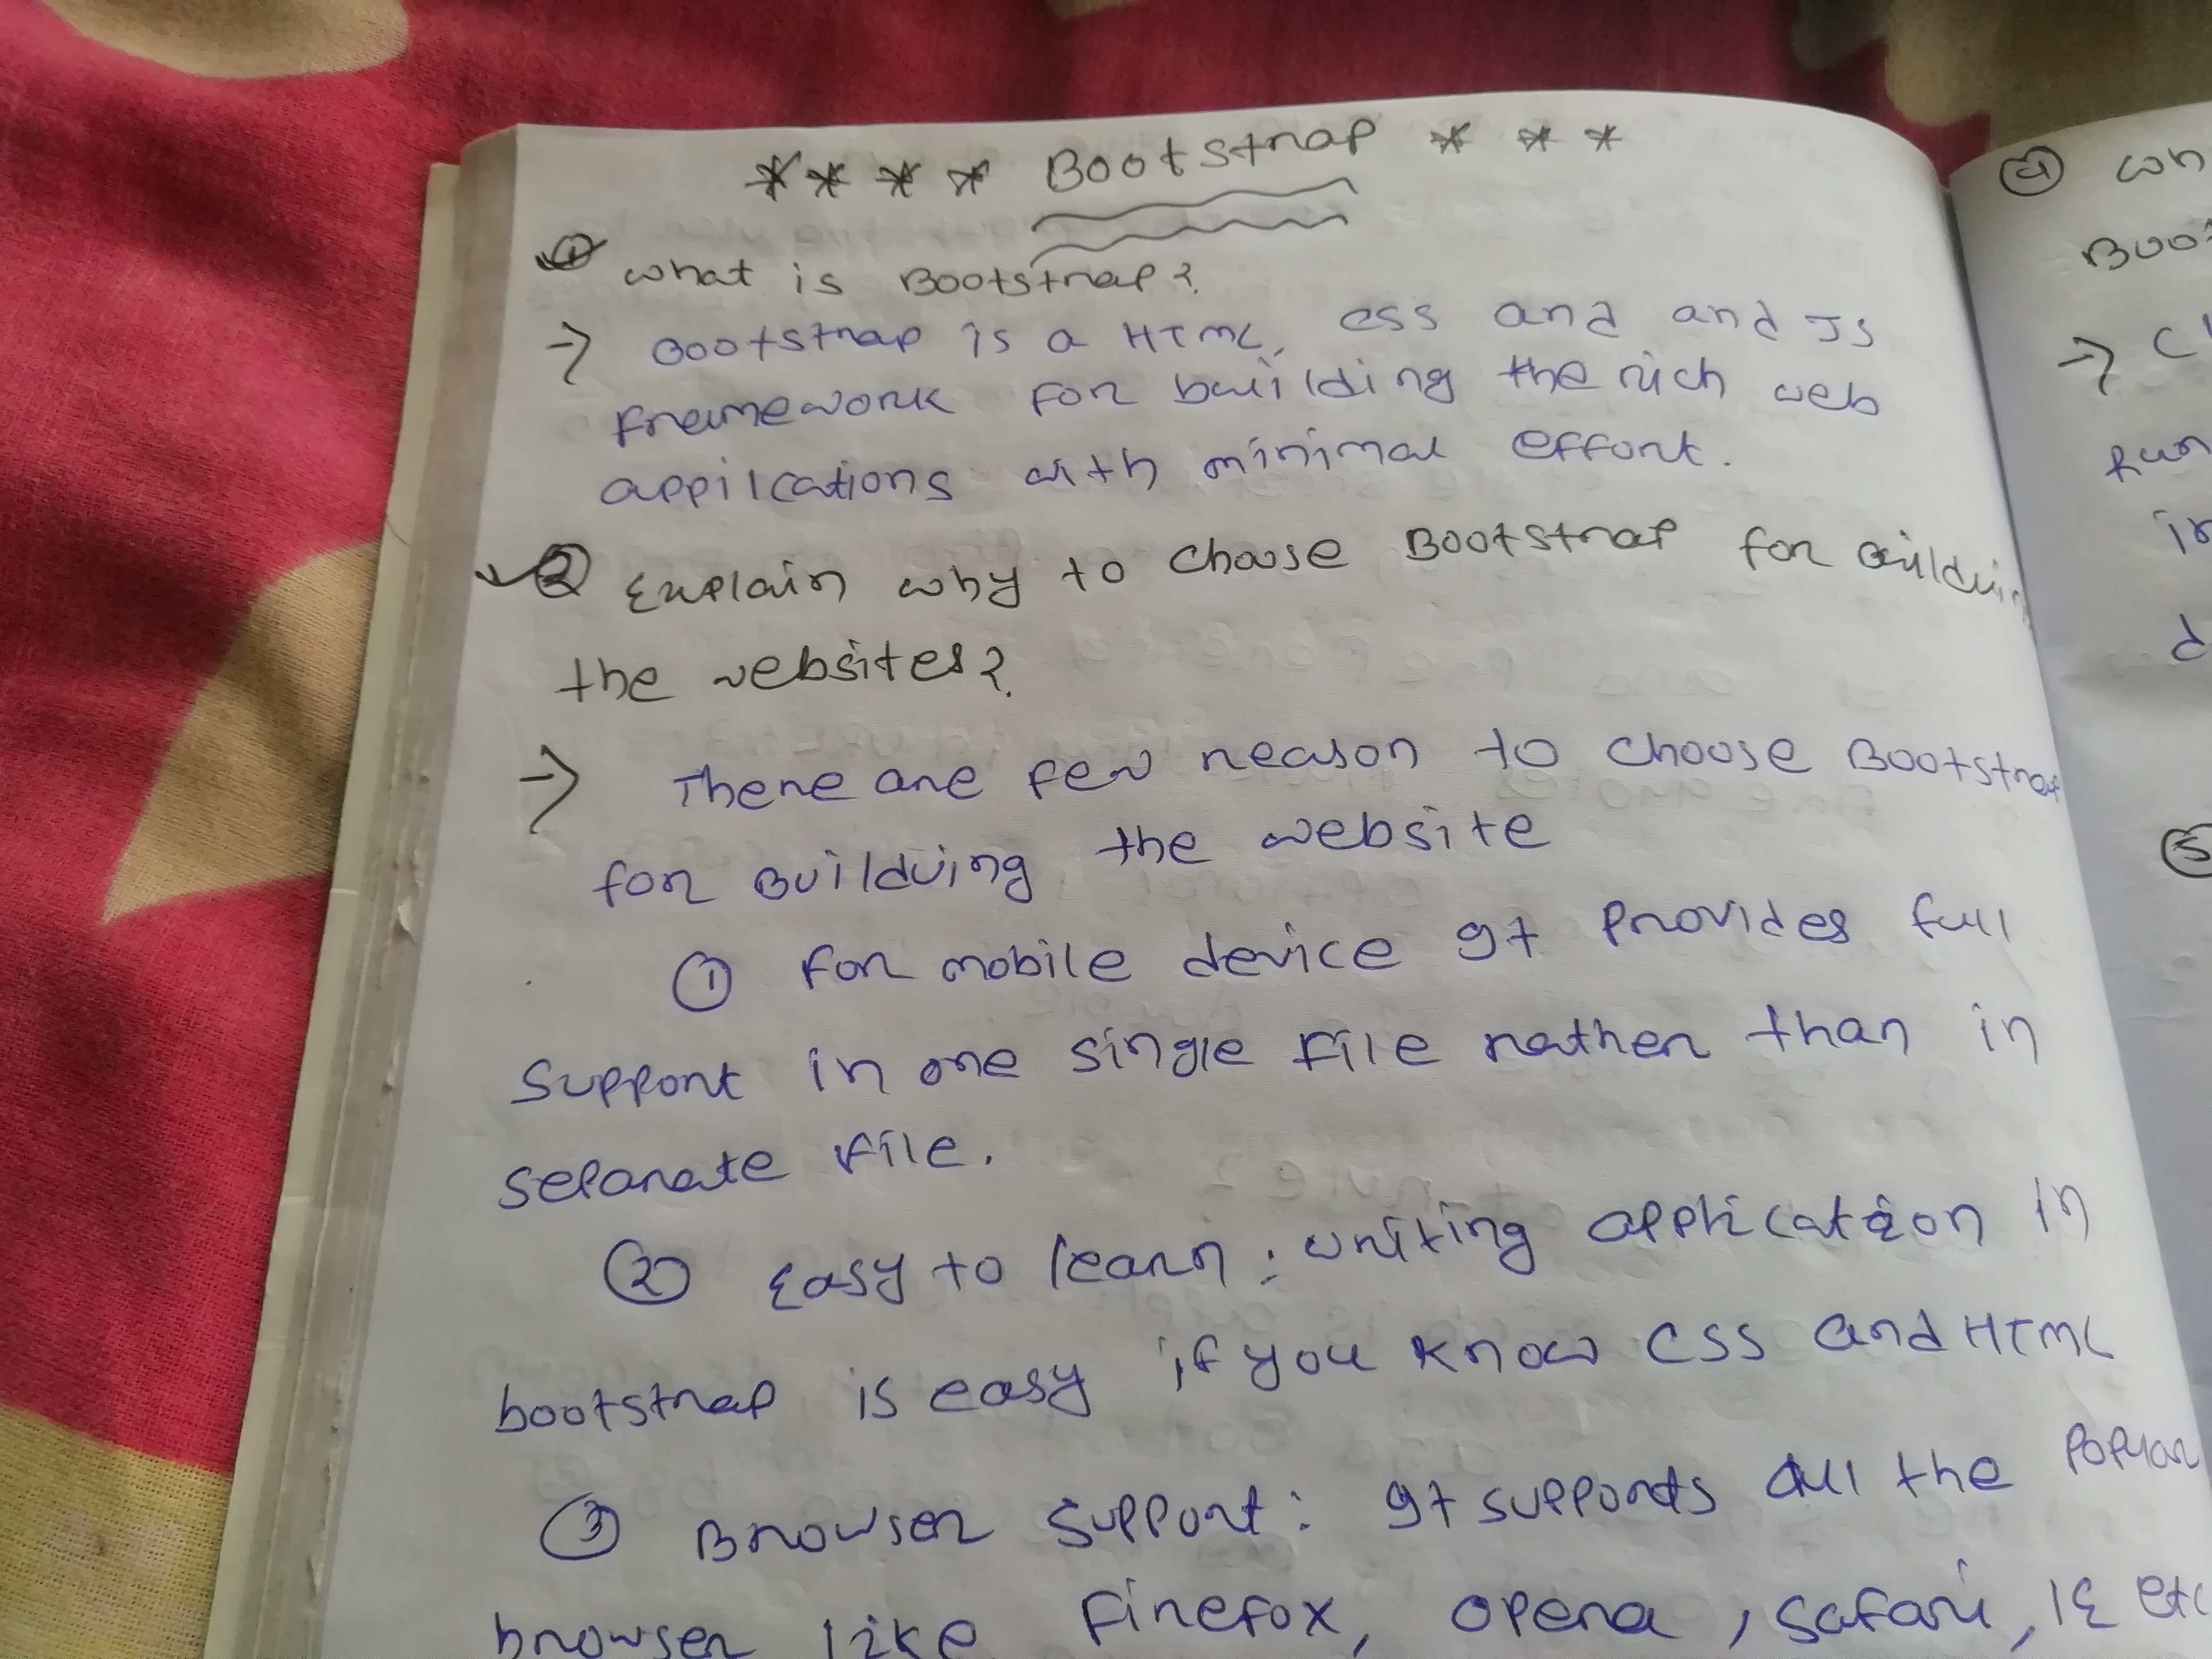 **** Bootstrap ***
① what is Bootstrap?
→ Bootstrap is a HTML, css and and JS
framework for building the rich web
appilcations with minimal effort.
② Explain why to choose Bootstrap for Building
the websites?
→ There are few reason to choose Bootstrap
for Building the website
① For mobile device It provides full
support in one single file rather than in
separate file.
② Easy to learn : writing application in
bootstrap is easy if you know CSS and HTML
③ Browser support: It supports all the Popular
browser like Firefox, Opera, Safari, IE etc
④
→
in
d
⑤